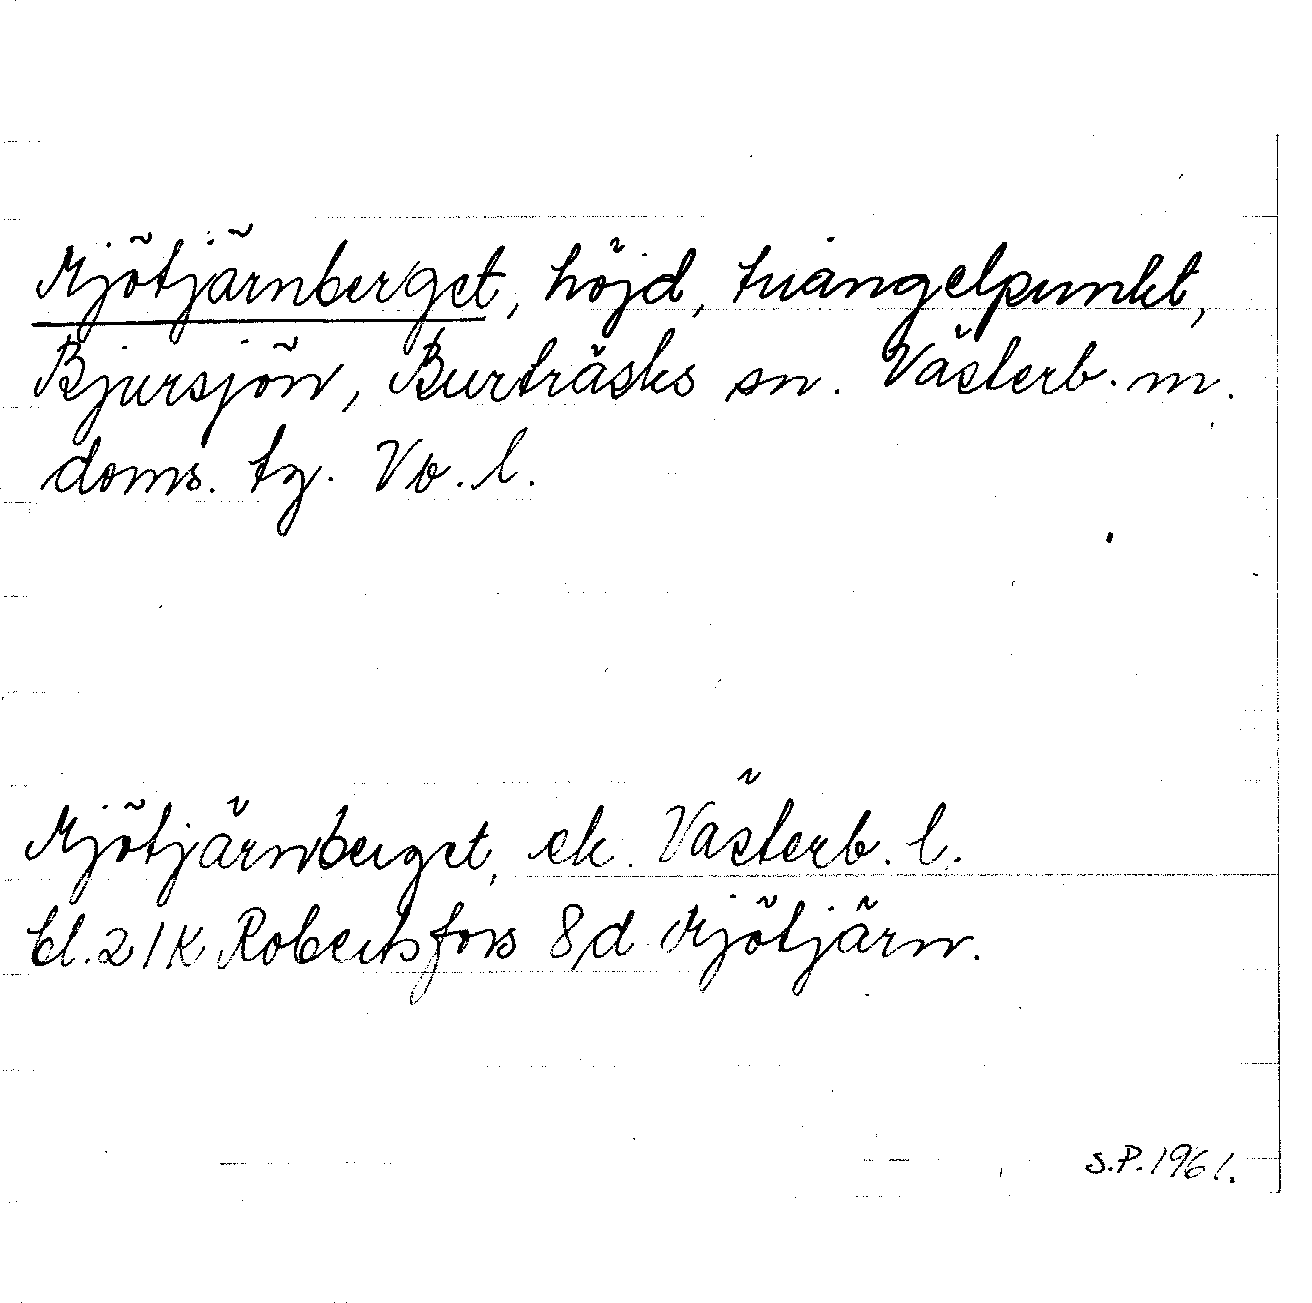 Mjötjärnberget, höjd, triangelpunkt,
Bjursjön, Burträsks sn. Västerb. m.
doms. tg. Vb. l.
Mjötjärnberget, ek. Västerb. l.
bl. 21K Robertsfors 8d Mjötjärn.
S.P. 1961.